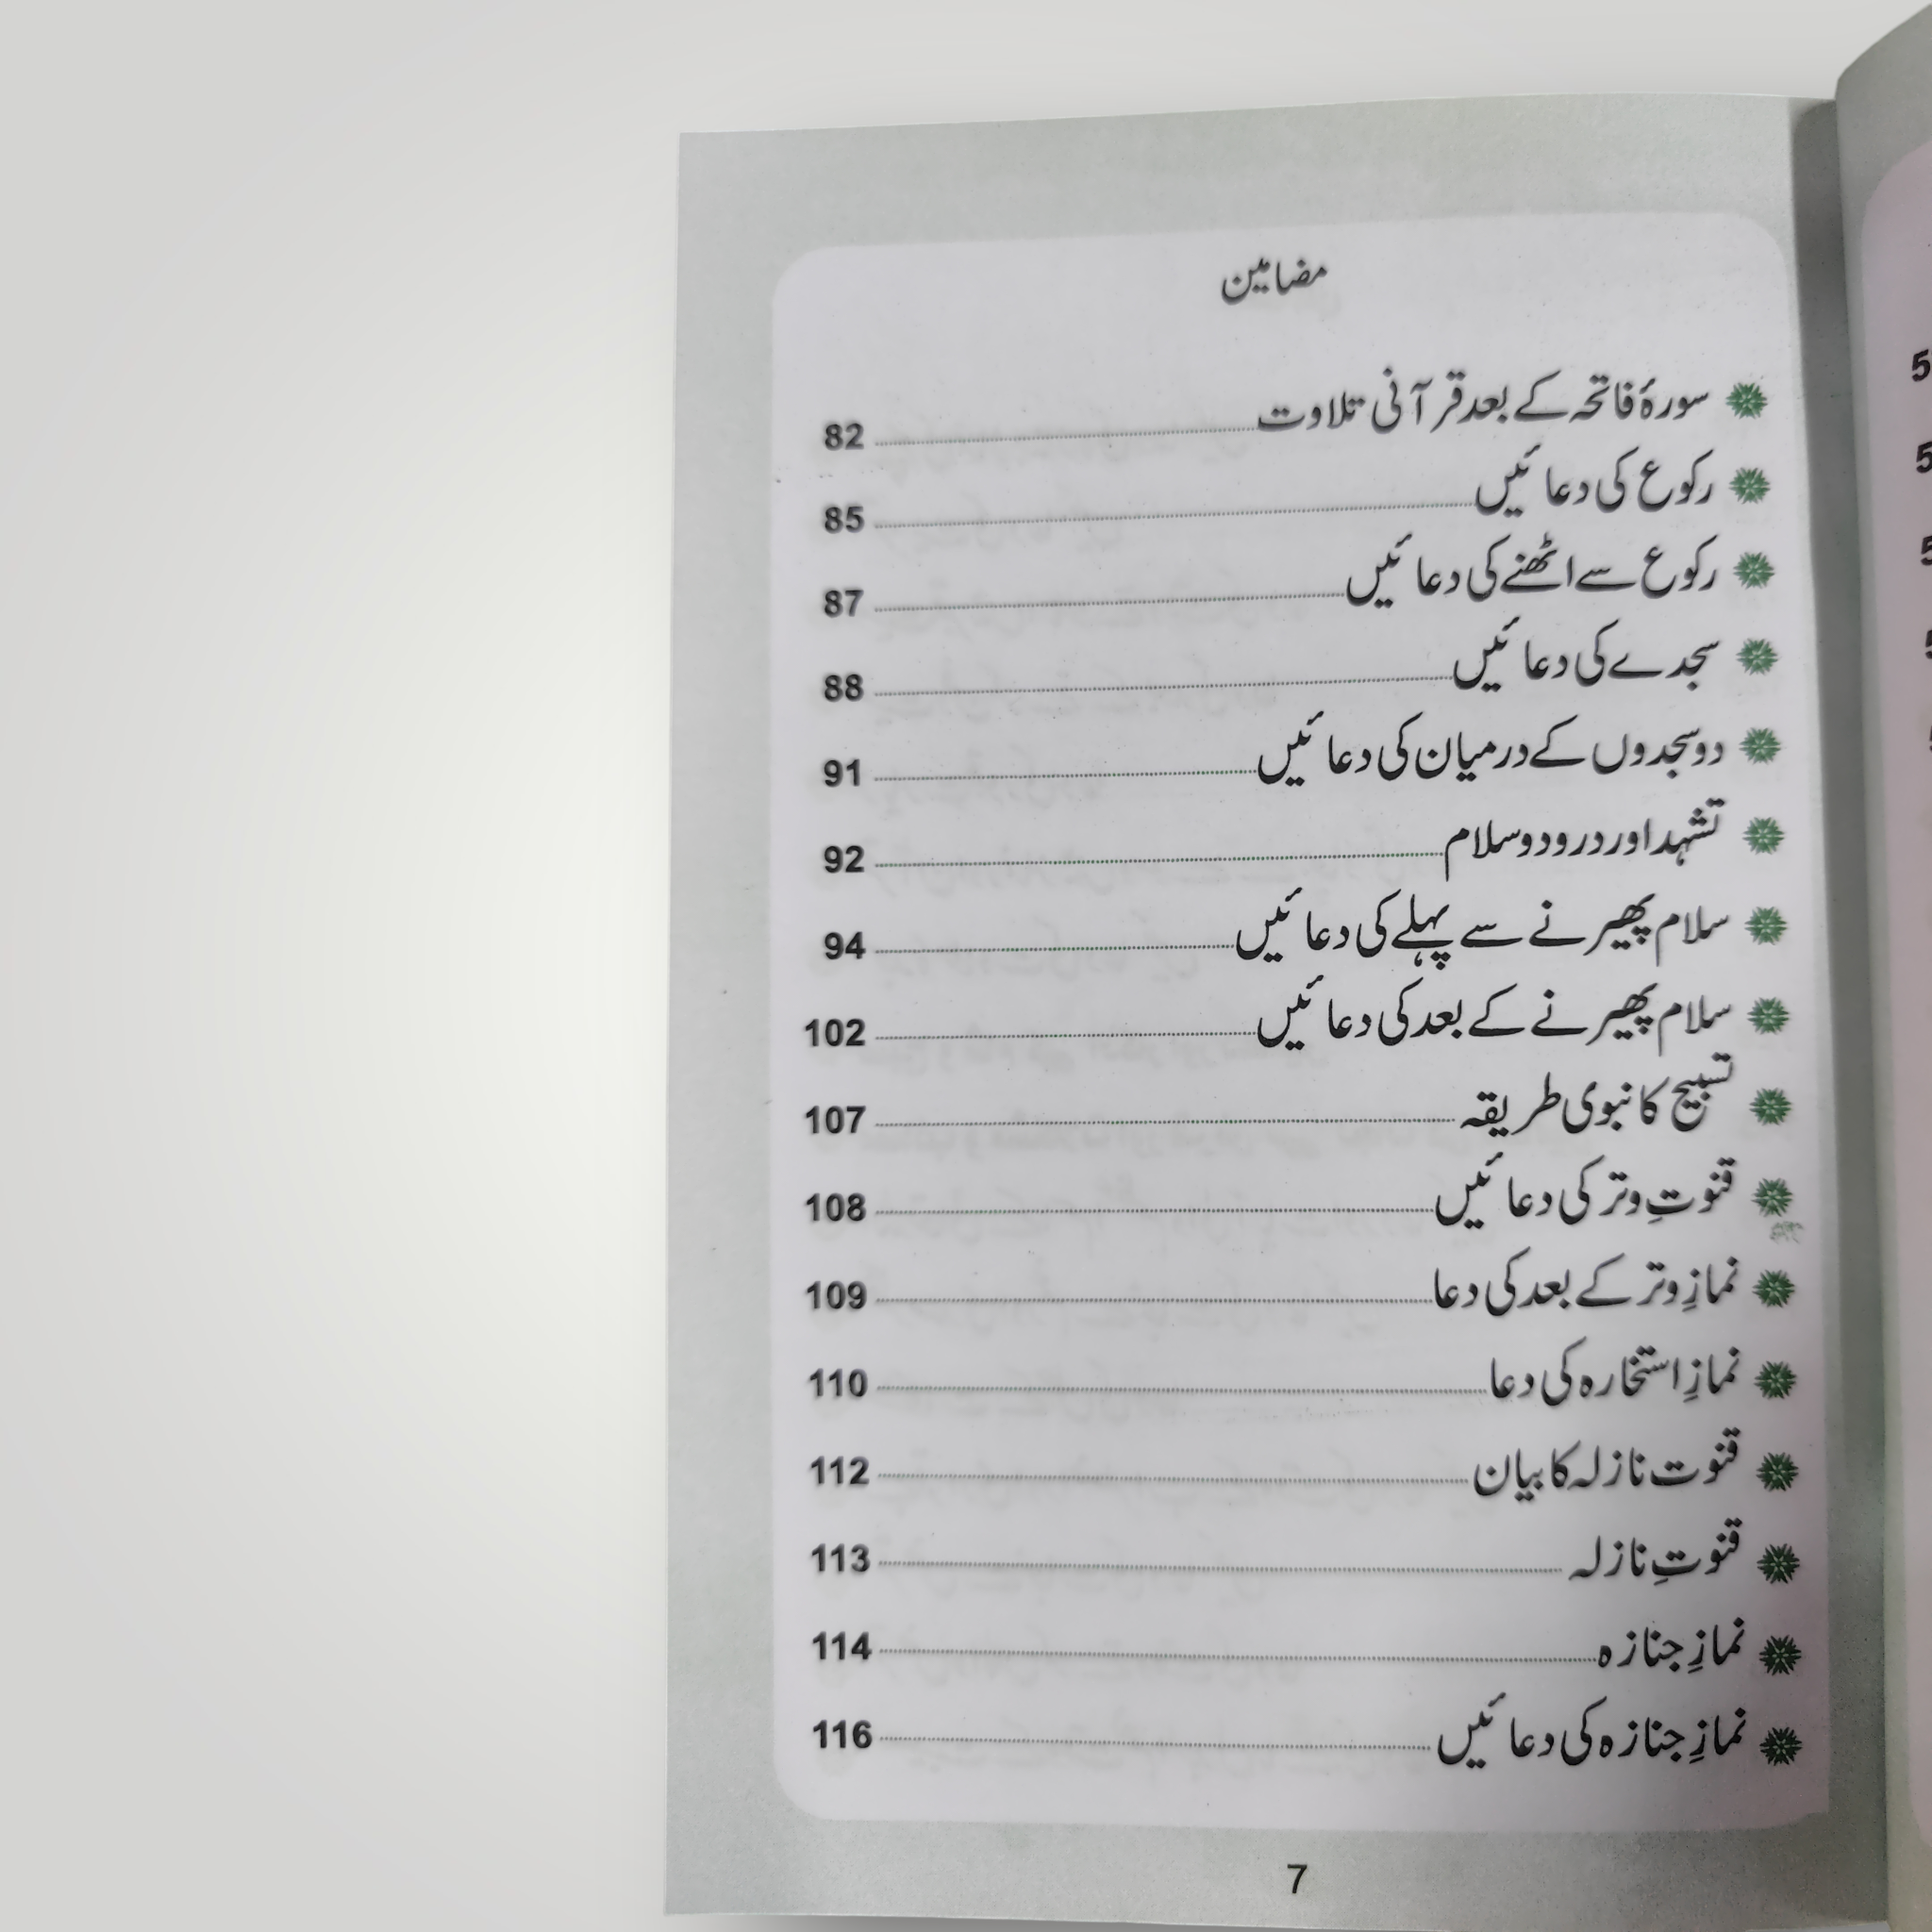 مضامین
سورۂ فاتحہ کے بعد قرآنی تلاوت ........ 82
رکوع کی دعائیں ........ 85
رکوع سے اٹھنے کی دعائیں ........ 87
سجدے کی دعائیں ........ 88
دو سجدوں کے درمیان کی دعائیں ........ 91
تشہد اور درود و سلام ........ 92
سلام پھیرنے سے پہلے کی دعائیں ........ 94
سلام پھیرنے کے بعد کی دعائیں ........ 102
تسبیح کا نبوی طریقہ ........ 107
قنوتِ وتر کی دعائیں ........ 108
نمازِ وتر کے بعد کی دعا ........ 109
نمازِ استخارہ کی دعا ........ 110
قنوت نازلہ کا بیان ........ 112
قنوتِ نازلہ ........ 113
نمازِ جنازہ ........ 114
نمازِ جنازہ کی دعائیں ........ 116
7